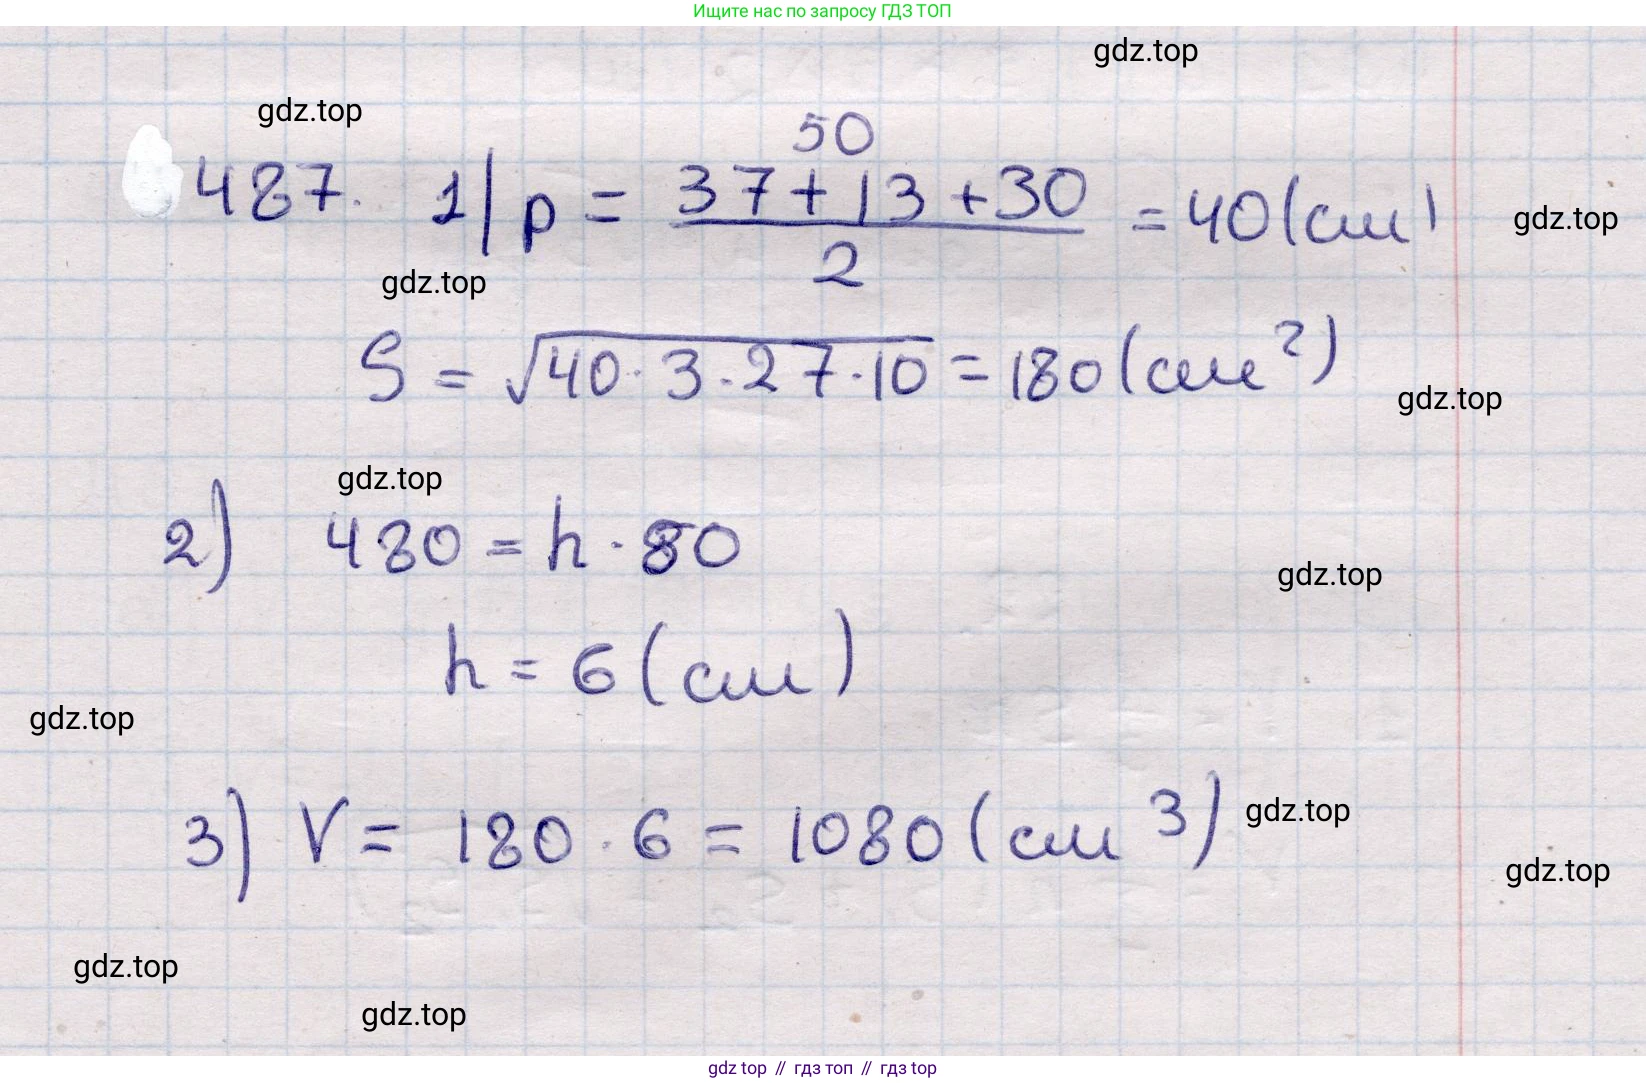 Ищите нас по запросу ГДЗ ТОП
gdz.top
gdz.top
50
487. 1) p = (37+13+30)/2 = 40 (см)
gdz.top
gdz.top
S = √40·3·27·10 = 180 (см²)
gdz.top
gdz.top
2) 480 = h · 80
gdz.top
h = 6 (см)
gdz.top
3) V = 180 · 6 = 1080 (см³)
gdz.top
gdz.top
gdz.top
gdz.top
gdz top // гдз топ // гдз top